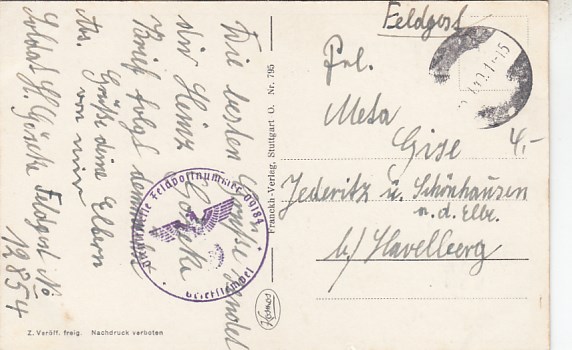 Die besten Grüße sendet
dir Heinz Göseke
Brief folgt demnächst
Grüße deine Eltern
von mir
Abs.
Soldat H. Göseke Feldpost №
12854
Feldpost
Frl.
Meta
Gise
Jederitz ü. Schönhausen
a. d. Elbe.
b/ Havelberg
4,-
Franckh-Verlag, Stuttgart O. Nr. 795
Feldpostnummer 09184
Briefstempel
Kosmos
Z. Veröff. freig. Nachdruck verboten